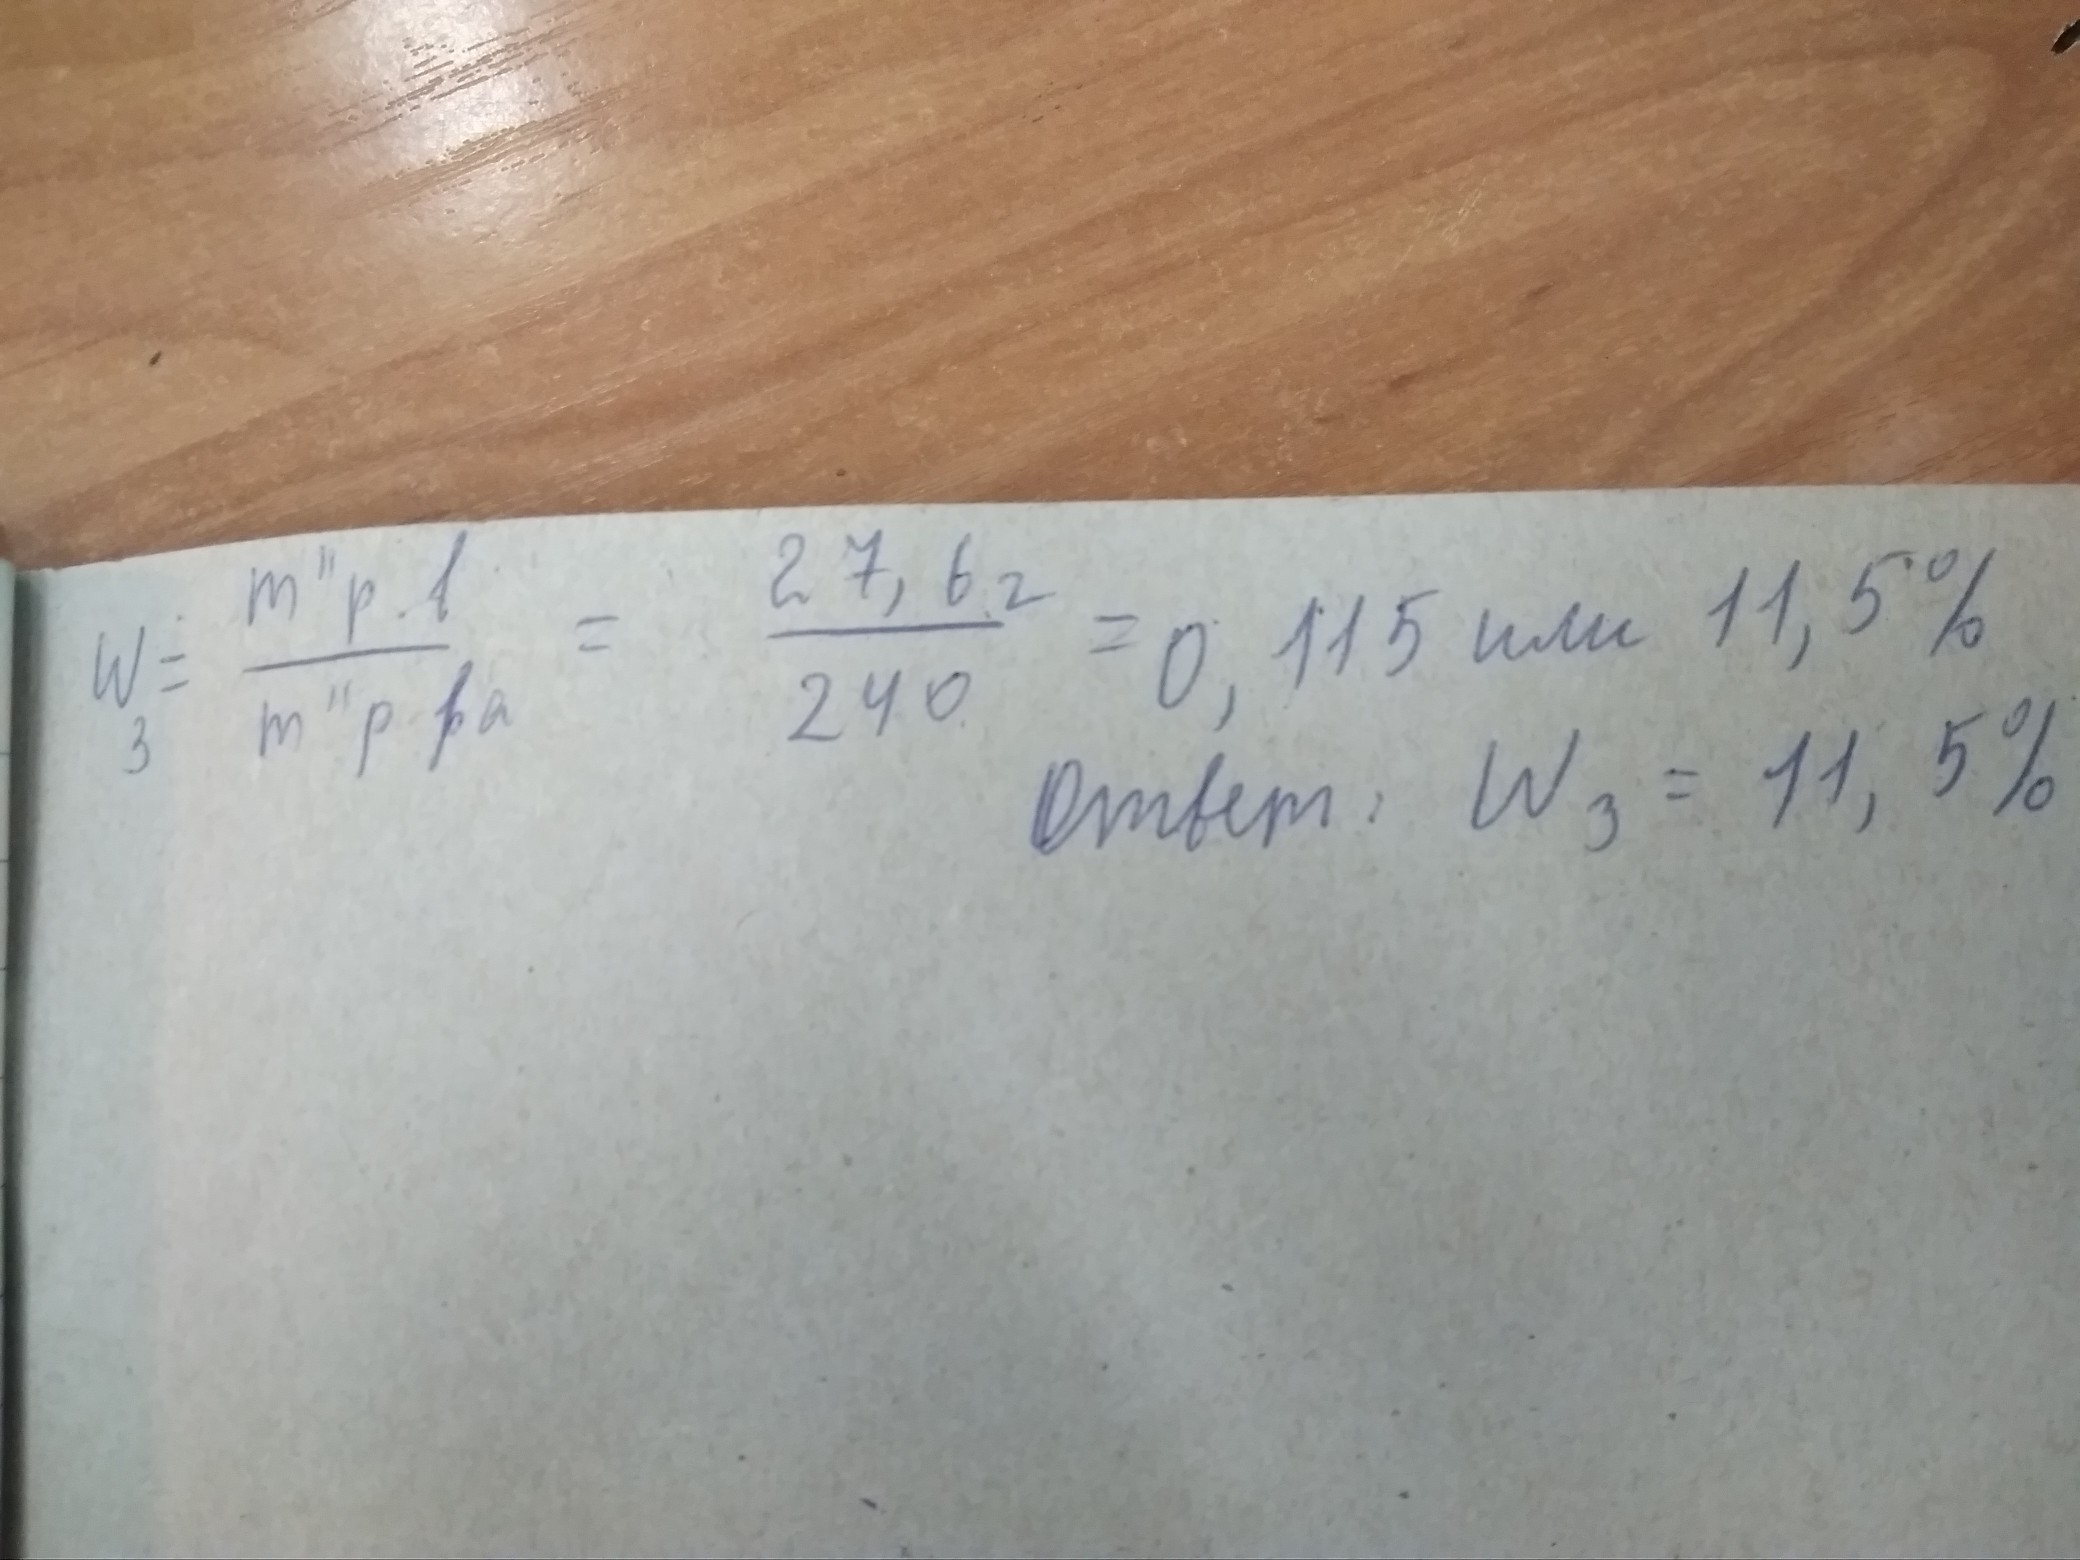 W₃ = m"р.в / m"р-ра = 27,6 г / 240 = 0,115 или 11,5%
Ответ: W₃ = 11,5%